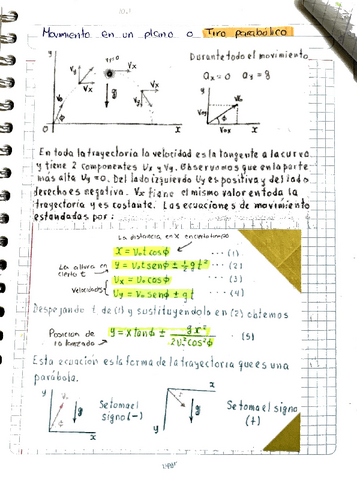 Movimiento en un plano o Tiro parabólico
Durante todo el movimiento
y
ax=0 ay=g
Vy
Vx
g
Vo
ϕ
0
x
y
Vo
Voy
ϕ
Vox
x
En toda la trayectoria la velocidad es la tangente a la curva
y tiene 2 componentes Ux y Vy. Observamos que en la parte
más alta Uy=0. Del lado izquierdo Uy es positiva y del lado
derecho es negativa. Vx tiene el mismo valor en toda la
trayectoria y es costante. Las ecuaciones de movimiento
estan dadas por:
La distancia en X en cierto tiempo
X = Vot cosϕ ... (1)
La altura en cierto t
y = Vot senϕ ± ½gt² ... (2)
Velocidades
Ux = Uo cosϕ ... (3)
Uy = Uo senϕ ± gt ... (4)
Despejando t de (1) y sustituyendolo en (2) obtemos
Posición de lo lanzado
y = x Tanϕ ± gx²/2U₀²cos²ϕ ... (5)
Esta ecuación es la forma de la trayectoria que es una
parábola.
y
Vo
g
ϕ
x
Se toma el
signo (-)
x
g
y
Se toma el signo
(+)